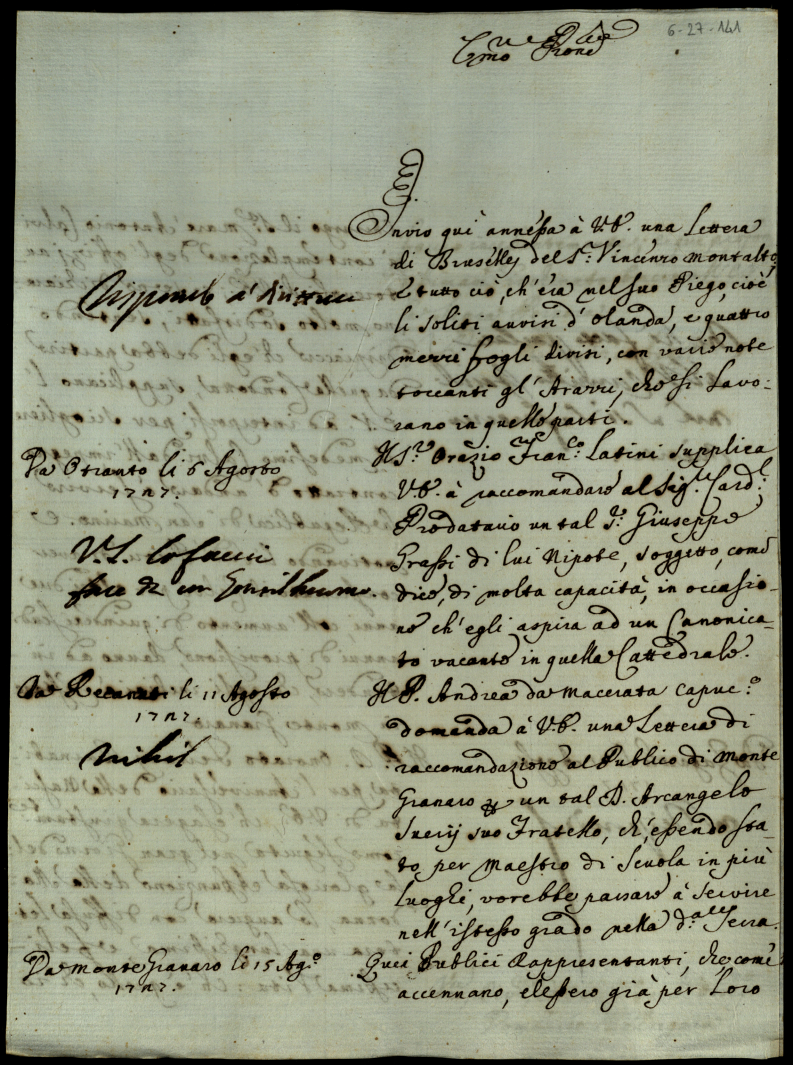 6-27-141
Em͞o e P͞rone
Invio quì annessa à V.E. una Lettera
di Bruselles del Sr. Vincenzo Montalto,
e tutto ciò, ch'era nel suo Piego, cioè
li soliti avvisi d'Olanda, e quattro
mezzi fogli divisi, con varie note
toccanti gl'Arazzi, che si Lavo:
rano in quelle parti.
Da Otranto li 6 Agosto
1727.
Il Sr. Orazio Franco. Latini supplica
V.E. à raccomandare al Sigr. Cardl.
Prodatario un tal Sr. Giuseppe
Grassi di lui Nipote, soggetto, come
dice, di molta capacità, in occasio-
ne ch'egli aspira ad un Canonica-
to vacante in quella Cattedrale.
V.S. lo facci
Da Recanati li 11 Agosto
1727.
nihil
Il P. Andrea da Macerata Capuco.
domanda à V.E. una Lettera di
raccomandazione al Publico di Monte
Granaro per un tal D. Arcangelo
suo Fratello, ch'essendo sta-
to per Maestro di Scuola in più
Luoghi, vorebbe passare à servire
nell'istesso grado nella da. Terra.
Da Monte Granaro li 15 Ago.
1727.
Quei Publici Rappresentanti, che come
accennano, elessero già per Loro